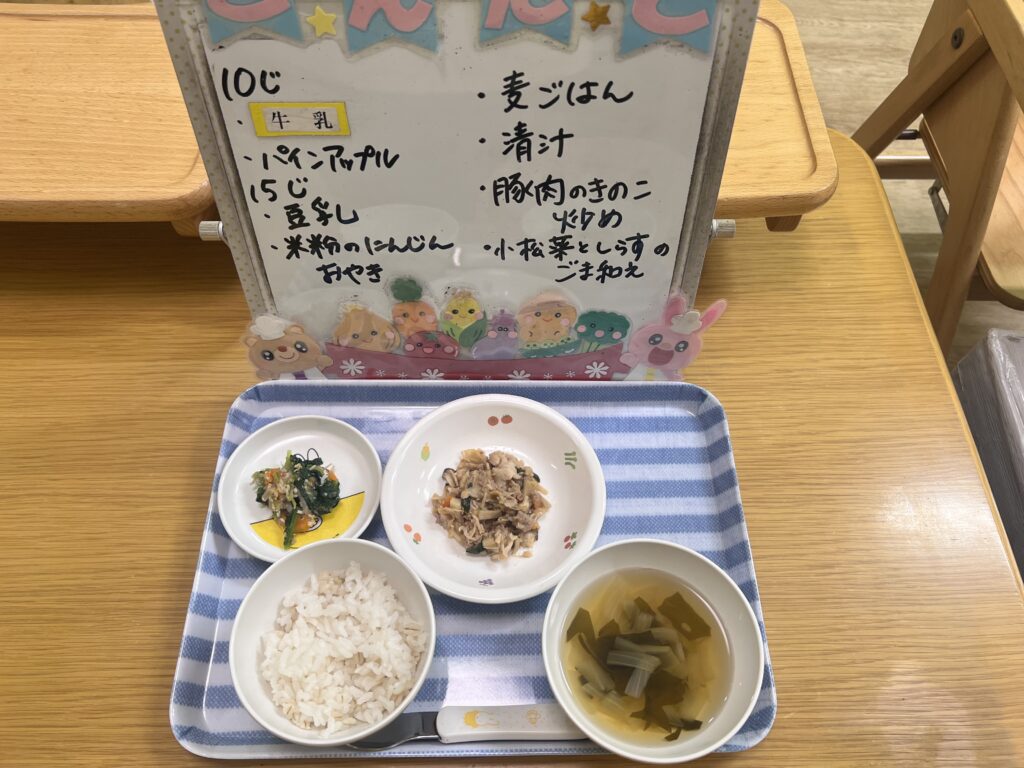 10じ
・牛乳
・パインアップル
15じ
・豆乳
・米粉のにんじん
おやき
・麦ごはん
・清汁
・豚肉のきのこ
炒め
・小松菜としらすの
ごま和え